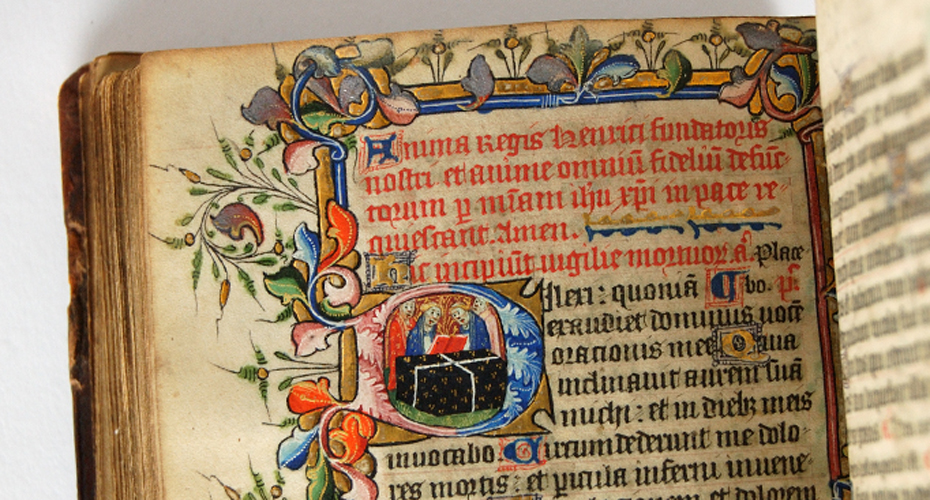 Anima Regis henrici fundatoris
nostri et anime omniū fideliū defūc-
torum p miam ihu xpi in pace re-
quiescant. Amen.
Hic incipiūt uigilie mortuoꝝ. a. Place
Dilexi: quoniā bo. ps.
exaudiet dominus uocē
orationis mee Quia
inclinauit aurem suā
michi: et in diebꝫ meis
inuocabo Circumdederunt me dolo-
res mortis: et picula inferni inuene-
et dolorem